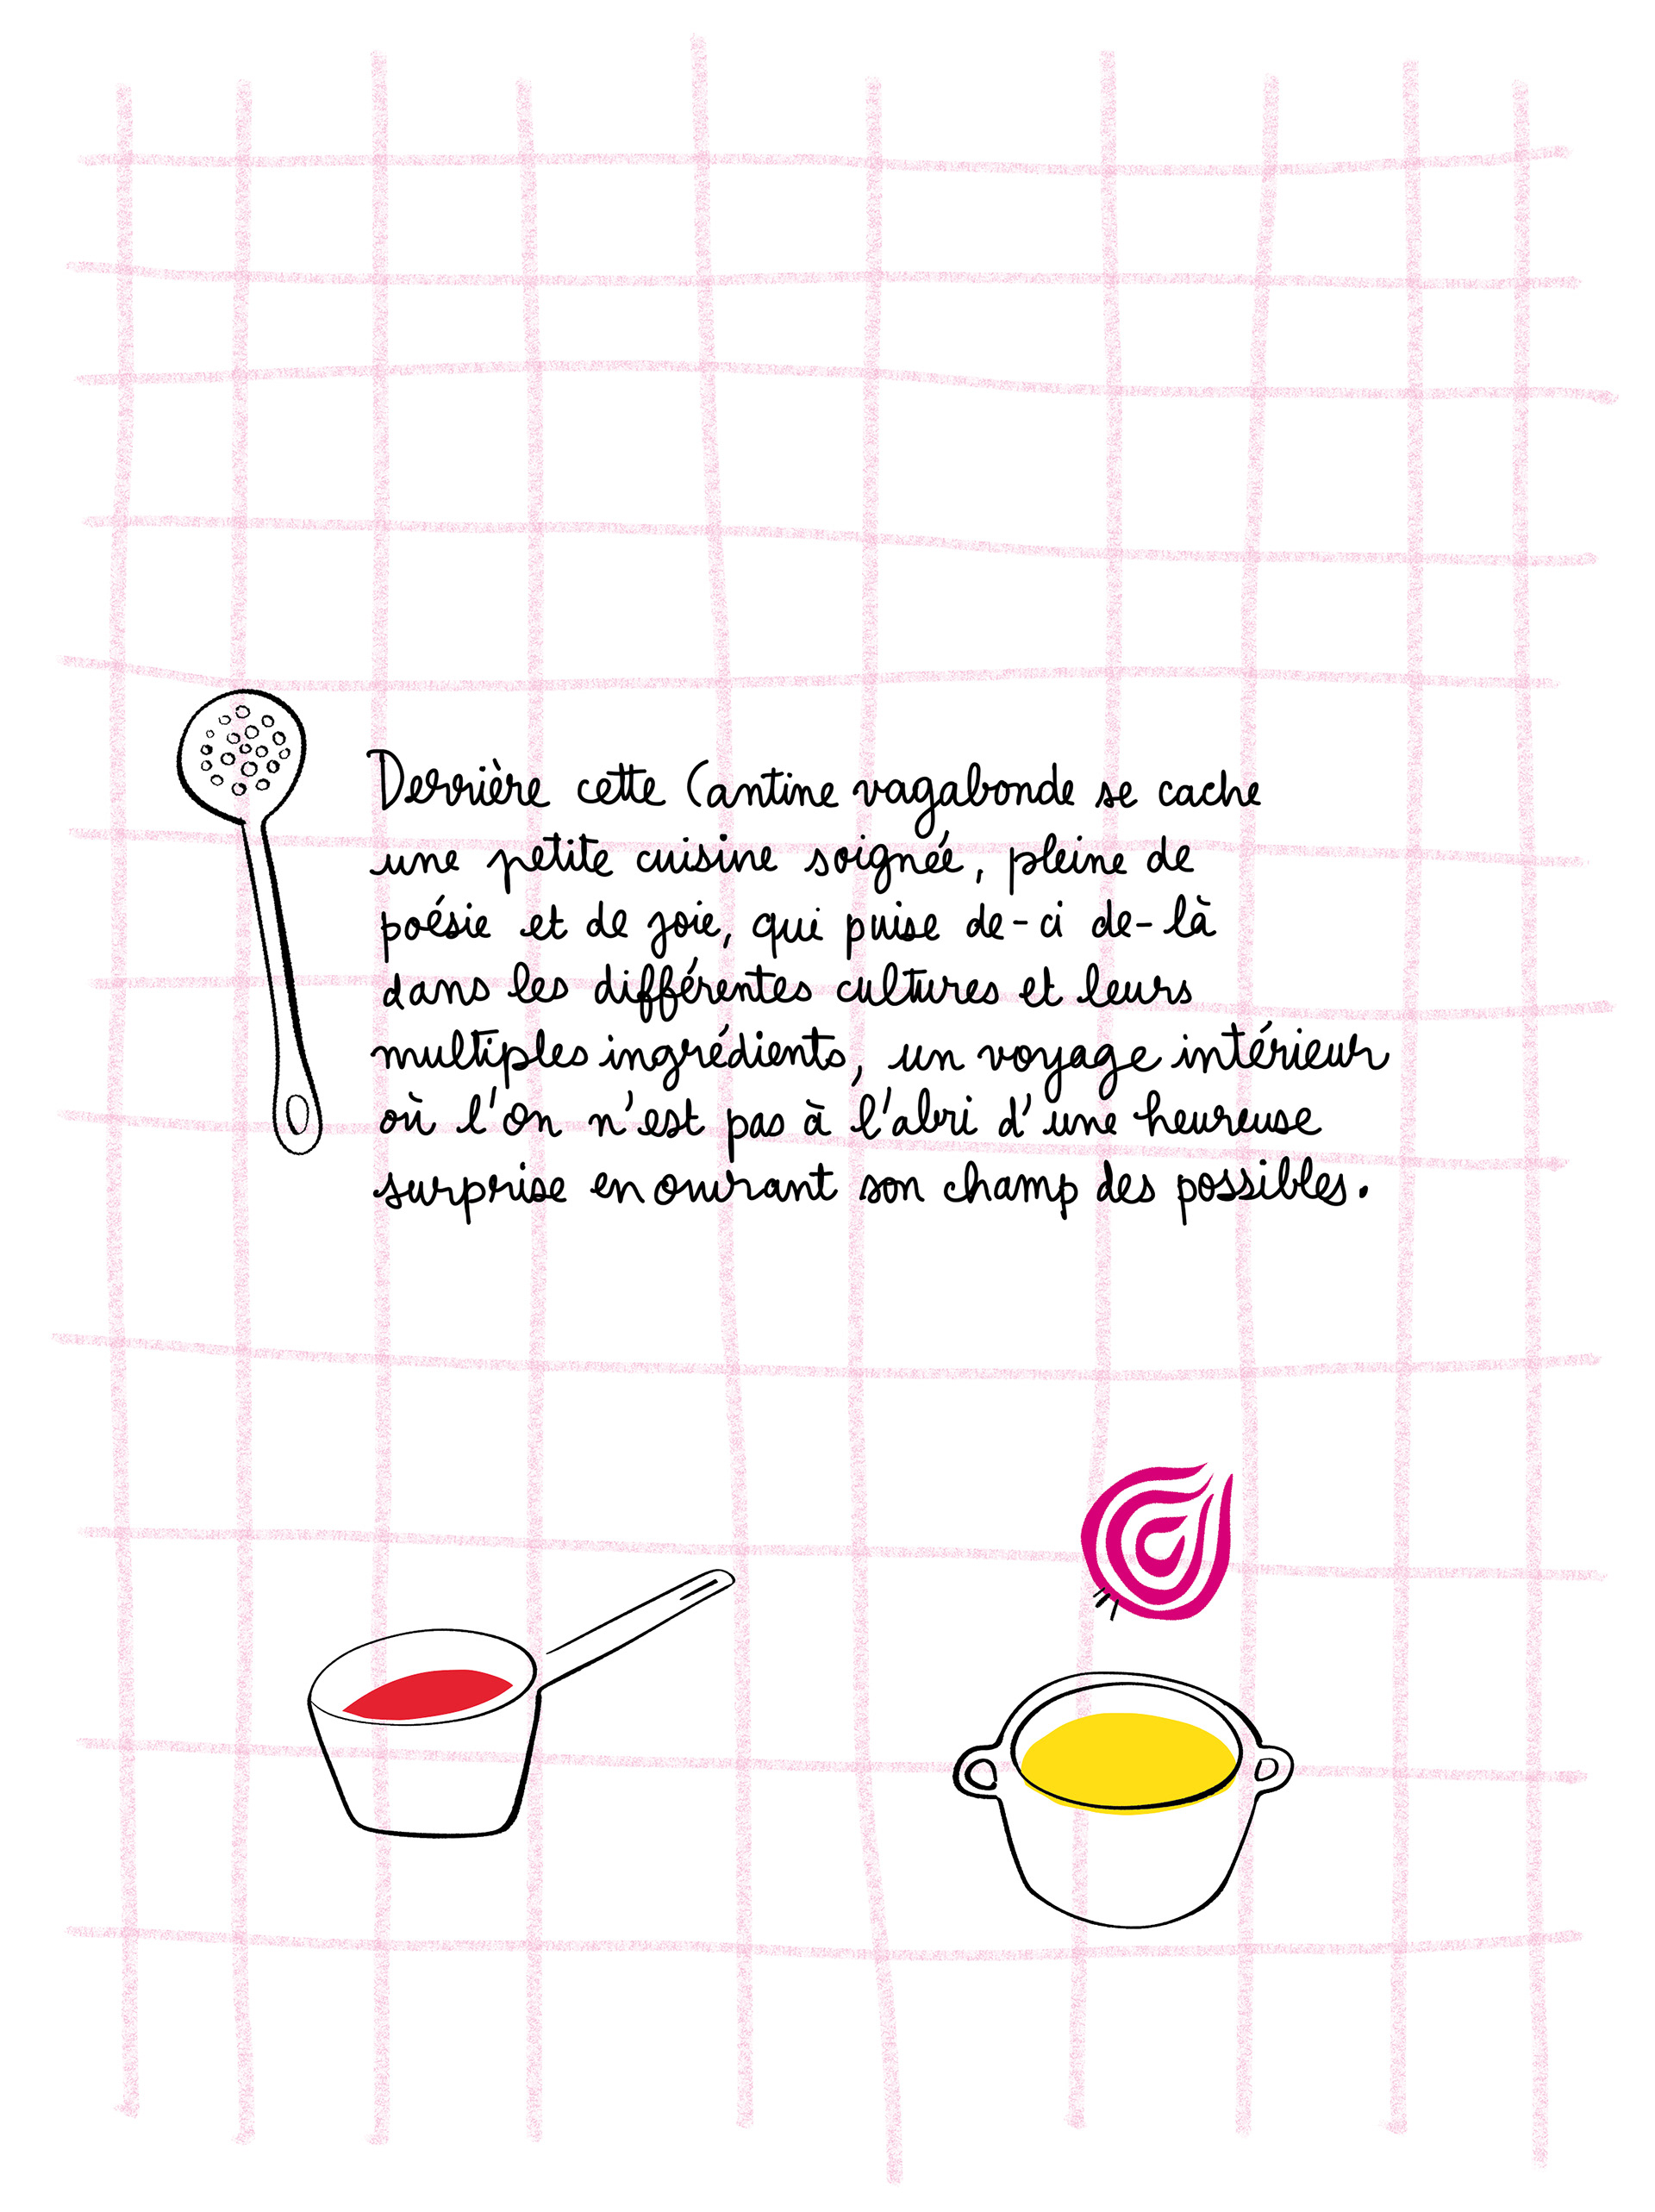 Derrière cette Cantine vagabonde se cache
une petite cuisine soignée, pleine de
poésie et de joie, qui puise de-ci de-là
dans les différentes cultures et leurs
multiples ingrédients, un voyage intérieur
où l'on n'est pas à l'abri d'une heureuse
surprise en ouvrant son champ des possibles.